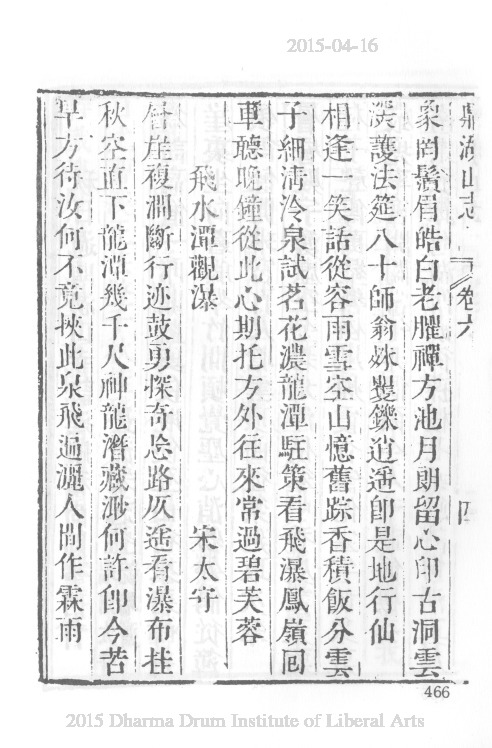 2015-04-16
鼎湖山志 卷六 四
象罔鬚眉皓白老臞禪方池月朗留心印古洞雲
深護法筵八十師翁殊矍鑠逍遥卽是地行仙
相逢一笑話從容雨雪空山憶舊踪香積飯分雲
子細淸泠泉試茗花濃龍潭駐策看飛瀑鳳嶺回
車聽晚鐘從此心期托方外往來常過碧芙蓉
飛水潭觀瀑 宋太守
層崖複澗斷行迹鼓勇探奇忩路仄遥看瀑布挂
秋空直下龍潭幾千尺神龍潛藏渺何許卽今苦
旱方待汝何不竟挾此泉飛遍灑人間作霖雨
466
2015 Dharma Drum Institute of Liberal Arts